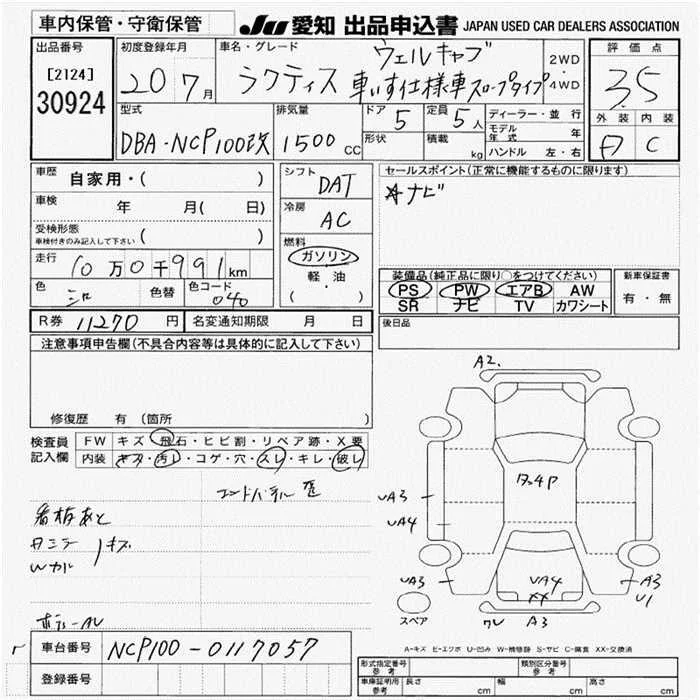 車内保管・守衛保管
JU 愛知 出品申込書 JAPAN USED CAR DEALERS ASSOCIATION
出品番号 初度登録年月 車名・グレード 評価点
[2124] 20 7月 ラクティス ウェルキャブ
車いす仕様車スロープタイプ 2WD・4WD 3.5
30924
外装 内装
型式 排気量 ドア 定員 ディーラー・並行
DBA・NCP100改 1500CC 5 5人 モデル年式 年
形状 積載 kg ハンドル 左・右 C
車歴 自家用・( )
シフト DAT
セールスポイント(正常に機能するものに限ります)
ナビ
車検 年 月( 日)
冷房 AC
受検形態
車検付きのみ記入して下さい ( )
走行 10万0千991km
燃料 ガソリン
軽・油
( )
装備品(純正品に限り○をつけてください) 新車保証書
PS PW エアB AW 有・無
SR ナビ TV カワシート
色 シロ 色替 色コード 040
R券 11270円 名変通知期限 月 日
後日品
注意事項申告欄(不具合内容等は具体的に記入して下さい)
修復歴 有 (箇所 )
検査員 FW キズ・飛石・ヒビ割・リペア跡・X要
記入欄 内装 キズ・汚レ・コゲ・穴・スレ・キレ・破レ
看板あと
キズ
Wカド
A2.
UA3
UA4
UA3
UA4
XX
A3
U1
A3
スペア
A-キズ E-エクボ U-凹み W-補修跡 S-サビ C-腐食 XX-交換済
車台番号 NCP100-0117057
登録番号
形式指定番号 参考 類別区分番号 参考
車庫証明用 参考 長さ cm 幅 cm 高さ cm